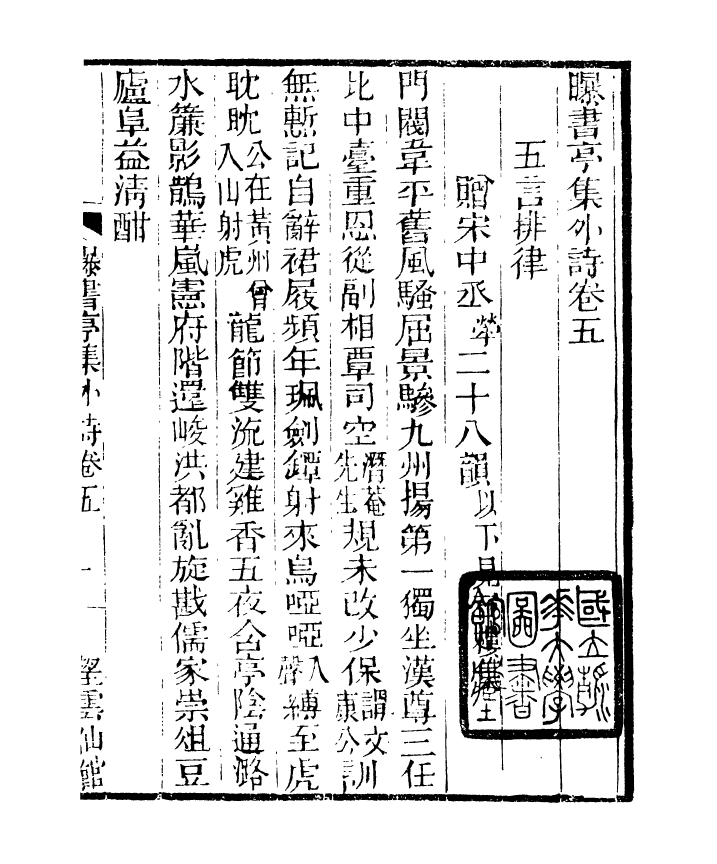 曝書亭集外詩卷五
五言排律
贈宋中丞犖二十八韻以下見
門閥韋平舊風騷屈景驂九州揚第一獨坐漢尊三任
比中臺重恩從副相覃司空潛菴先生規未改少保謂文康公訓
無慙記自辭裙屐頻年珮劍鐔射來烏啞啞入聲縛至虎
耽耽公在黃州曾入山射虎龍節雙流建雞香五夜含亭陰通潞
水簾影鵲華嵐憲府階還峻洪都亂旋戡儒家崇俎豆
廬阜益清酣
曝書亭集外詩卷五 一 望雲仙館
國立清華大學圖書館